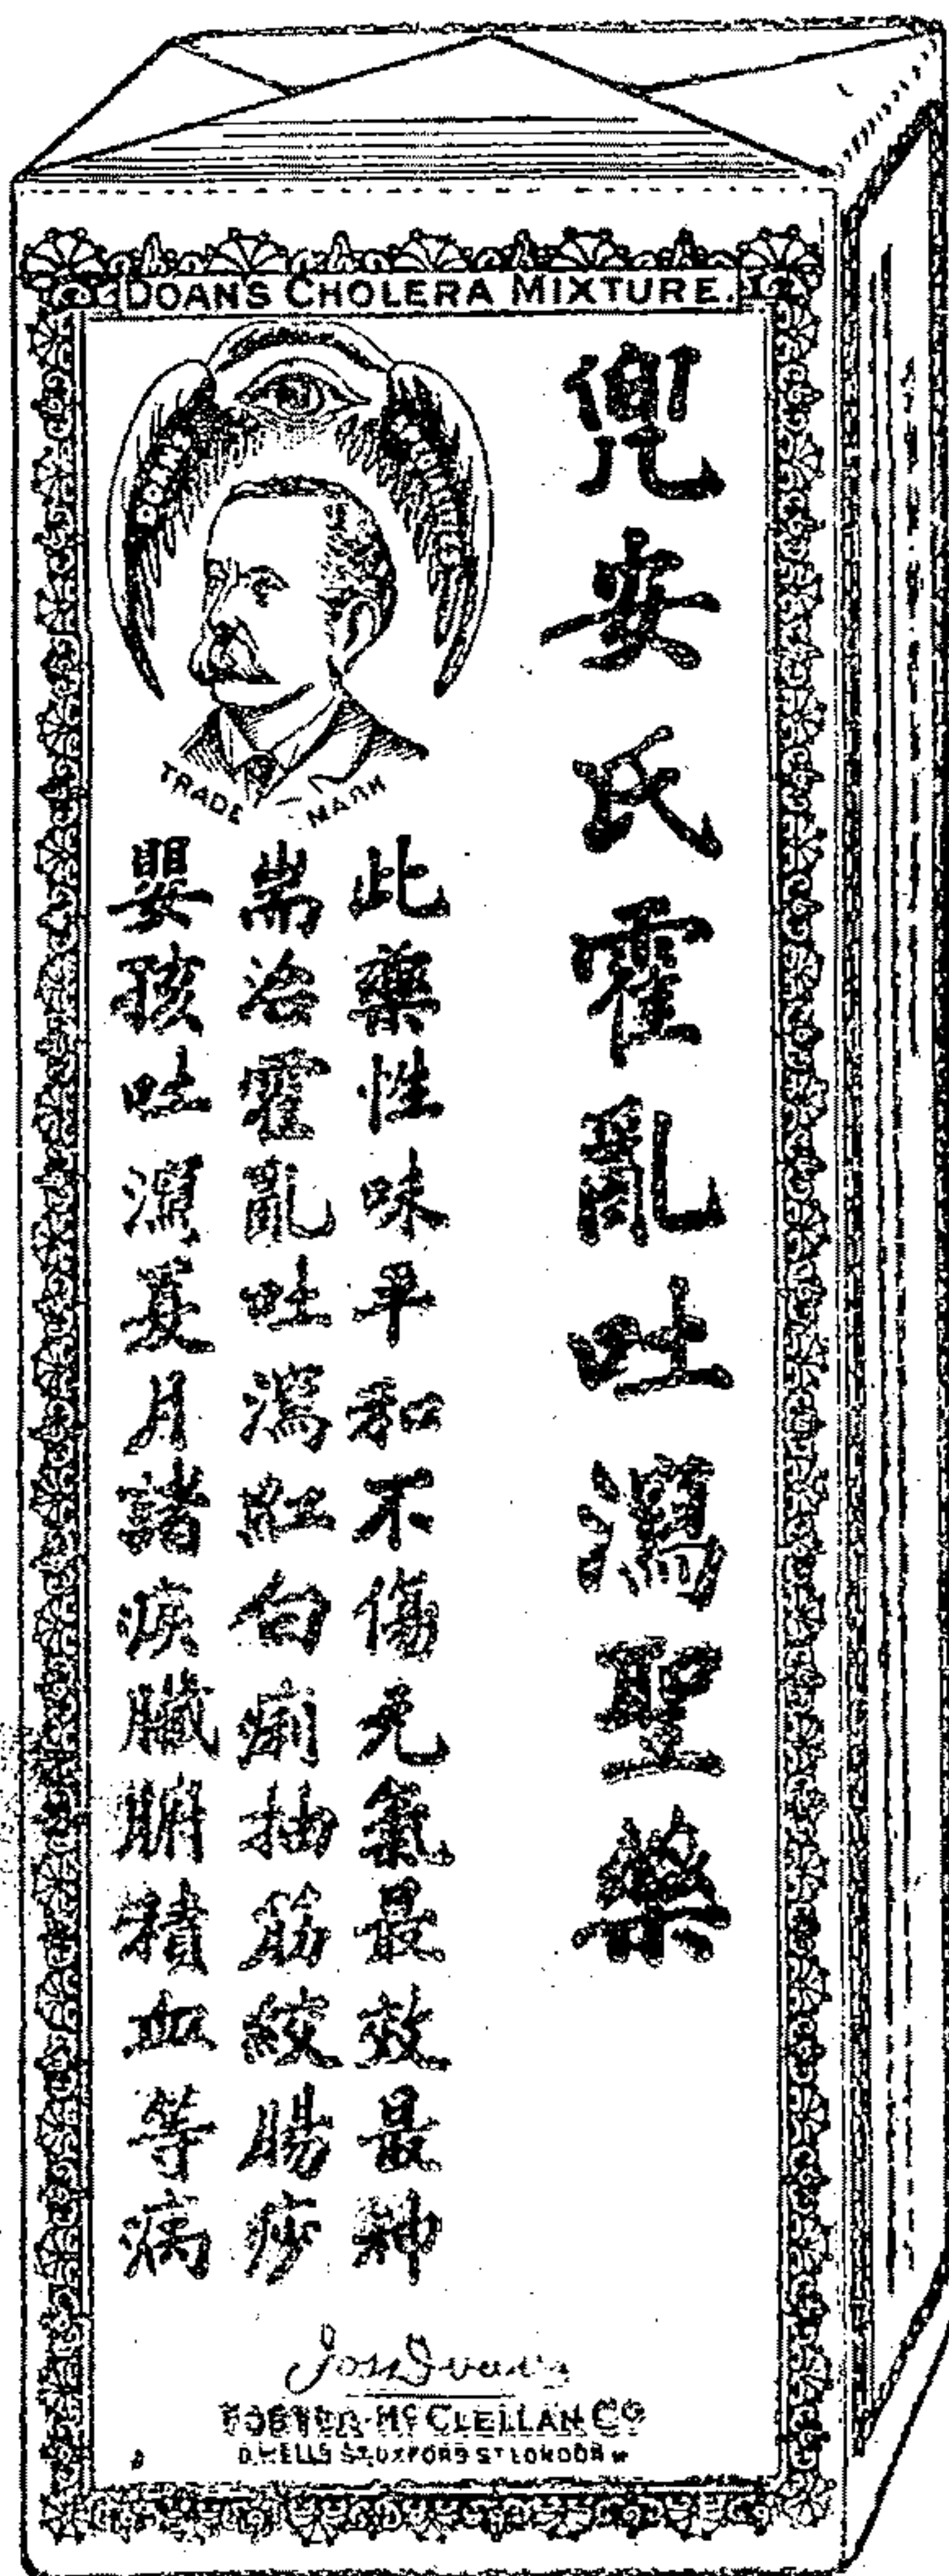 DOANS CHOLERA MIXTURE.
DOAN'S
TRADE MARK
兜安氏霍亂吐瀉聖藥
此藥性味平和不傷元氣最效最神
耑治霍亂吐瀉紅白痢抽筋絞腸痧
嬰孩吐瀉夏月諸痰臟腑積血等病
FOSTER-McCLELLAN Co
8, WELLS ST. OXFORD ST LONDON W